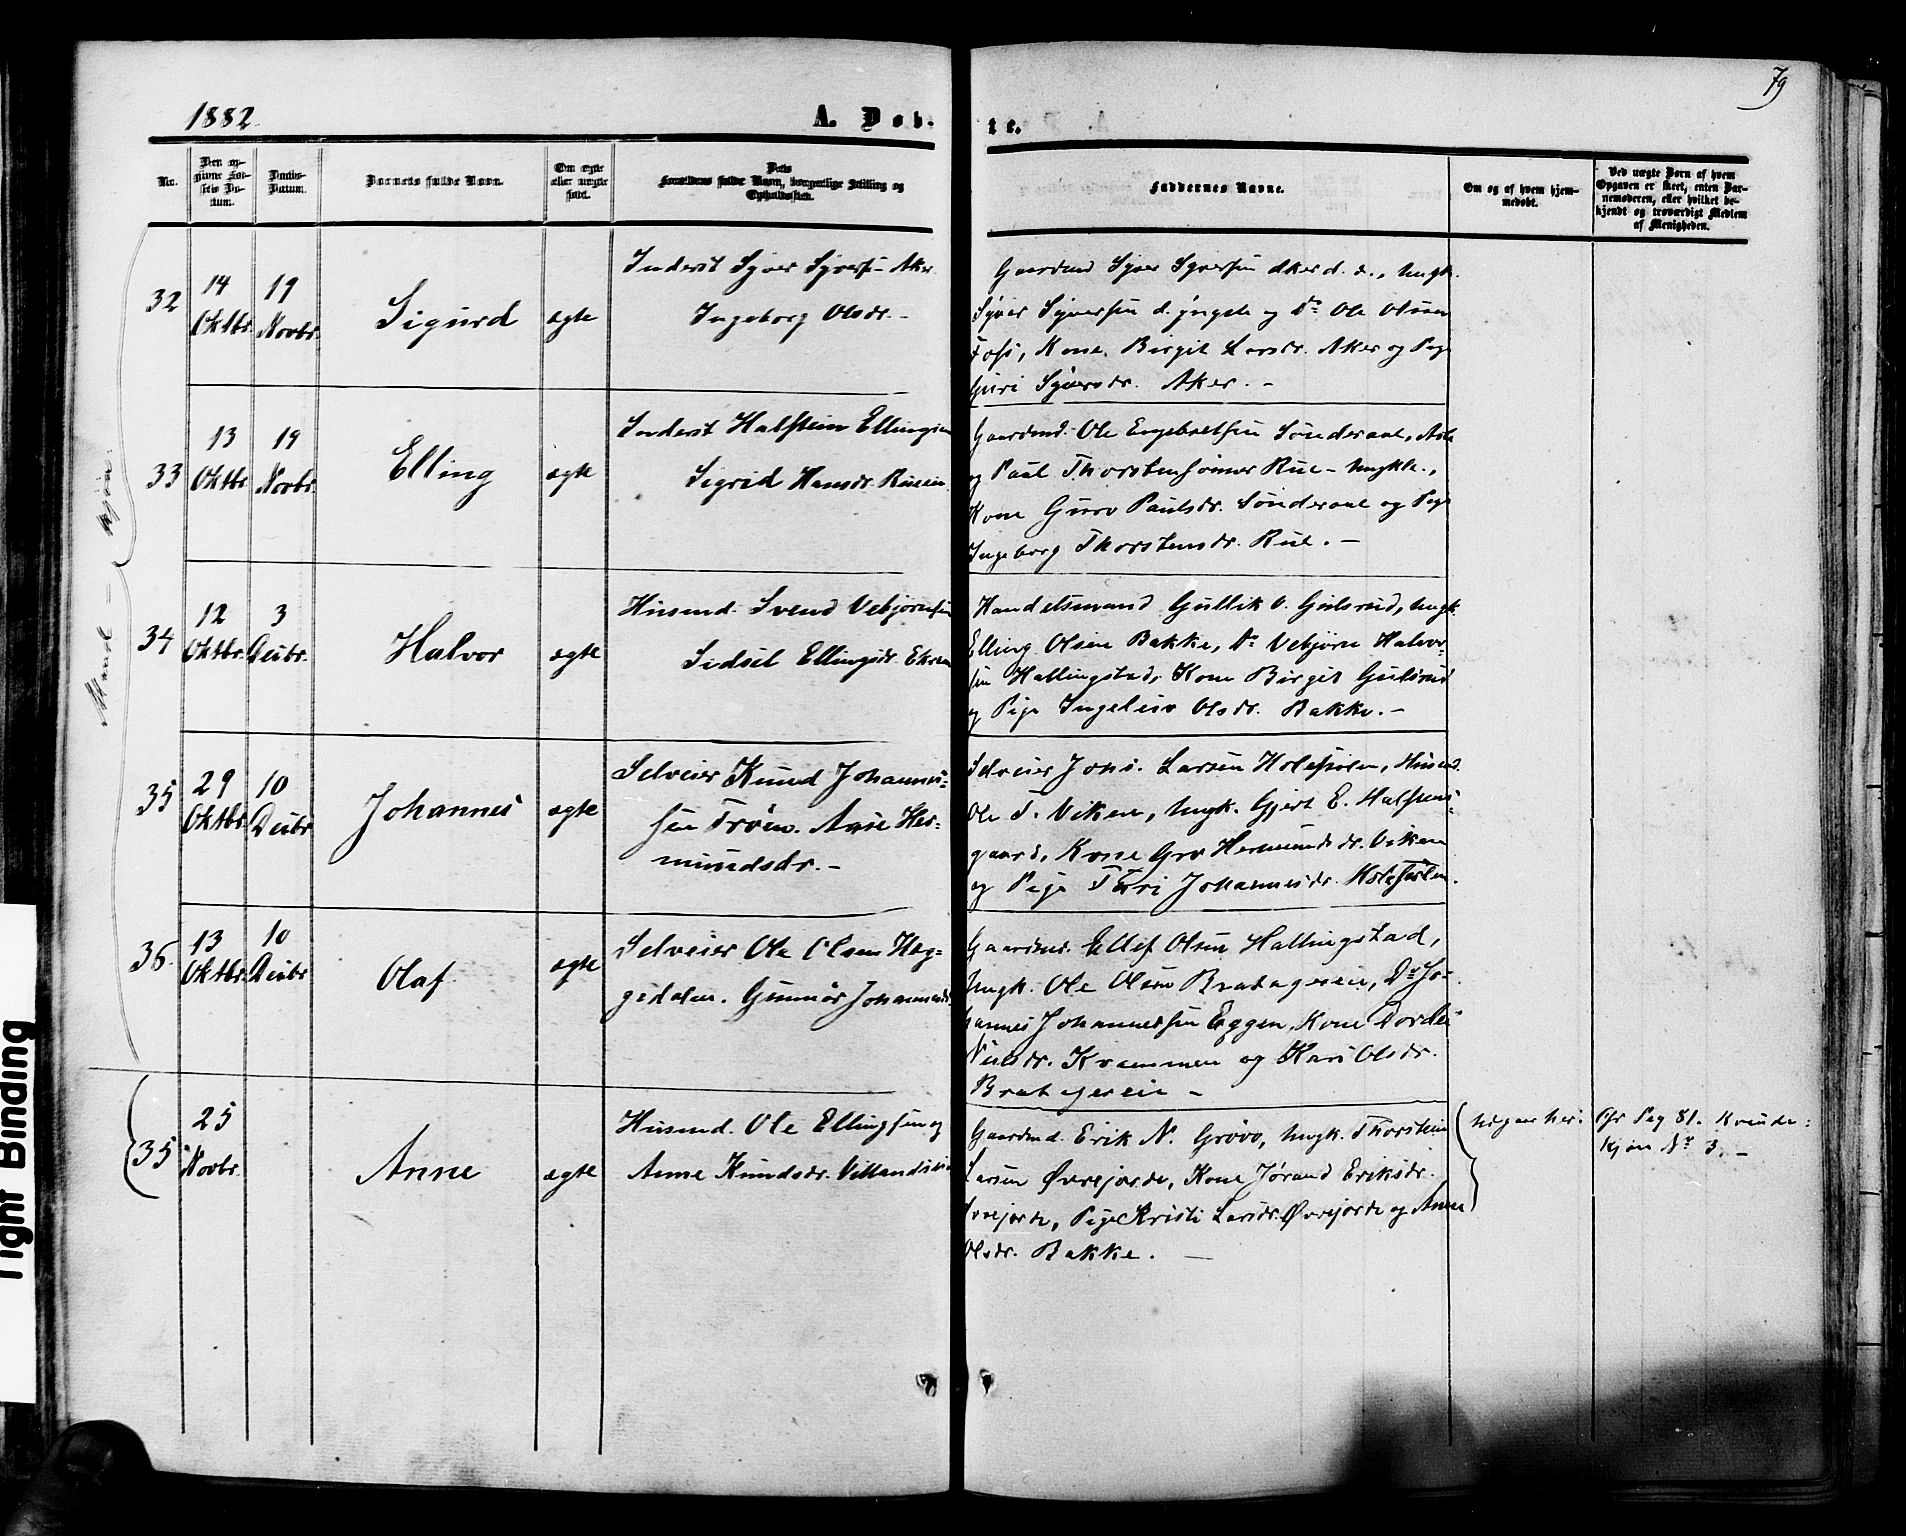 1882.
A. Døb-
te.
79
No.
Den op-
givne Fød-
sels Da-
tum.
Daabs-
Datum.
Barnets fulde Navn.
Om ægte
eller uægte
født.
Dets
Forældres fulde Navn, borgerlige Stilling og
Opholdssted.
Faddernes Navne.
Om og af hvem hjem-
medøbt.
Ved uægte Børn af hvem
Opgaven er skeet, enten Bar-
nemoderen, eller hvilket be-
kjendt og troværdigt Medlem
af Menigheden.
Mand-kjøn
32
14
Oktbr.
19
Novbr.
Sigurd
ægte
Inderst Syver Syversen Aker
Ingeborg Olsdr. -
Gaardmd Syver Syversen Aker d. æ., Ungk.
Syver Syversen d. yngste og Do Ole Olsen
Foss, Kone Birgit Larsdr. Aker og Pige
Guri Syversdr. Aker. -
33
13
Oktbr.
19
Novbr.
Elling
ægte
Inderst Halstein Ellingsen
Sigrid Hansdr. Rueeie
Gaardmd. Ole Engebretsen Sønderaal,
og Paul Thorstensønner Rue - Ungkle.,
Kone Guro Paulsdr. Sønderaal og Pige
Ingeborg Thorstensdr. Rue. -
34
12
Oktbr.
3
Decbr.
Halvor
ægte
Husmd. Svend Vebjørnsen
Sidsel Ellingsdr. Ekren
Handelsmand Gullik O. Gulsrud, Ungk.
Elling Olsen Bakke, Do Vebjørn Halvor-
sen Hallingstad, Kone Birgit Gulsrud
og Pige Ingeleiv Olsdr. Bakke. -
35
29
Oktbr.
10
Decbr.
Johannes
ægte
Selveier Knud Johannes-
sen Trøen. Anne Her-
mundsdr. -
Selveier Johs. Larsen Holesølen, Husmd.
Ole T. Viken, Ungk. Gjert E. Halstens-
gaard, Kone Gro Hermundsdr. Viken
og Pige Turi Johannesdr. Holesølen.
36.
13
Oktbr.
10
Decbr
Olaf
ægte
Selveier Ole Olsen Hæg-
gedalen. Gunnor Johannesdr.
Gaardmd. Ellef Olsen Hallingstad,
Ungk. Ole Olsen Bratagereie, Do Jo-
hannes Johannessen Eggen, Kone Tordis
Nilsdr. Kvammen og Kari Olsdr.
Bratagereie -
35
25
Novbr.
Anne
ægte
Husmd. Ole Ellingsen og
Anne Knudsdr. Villandseie
Gaardmd. Erik N. Grøvo, Ungk. Thorstein
Larsen Øvrejorde, Kone Jørand Eriksdr.
Øvrejorde, Pige Kristi Larsdr. Øvrejorde og Anne
Olsdr. Bakke. -
udgaar her.
Cfr Pag 81. Kvinde-
kjøn No 3. -
Tight Binding